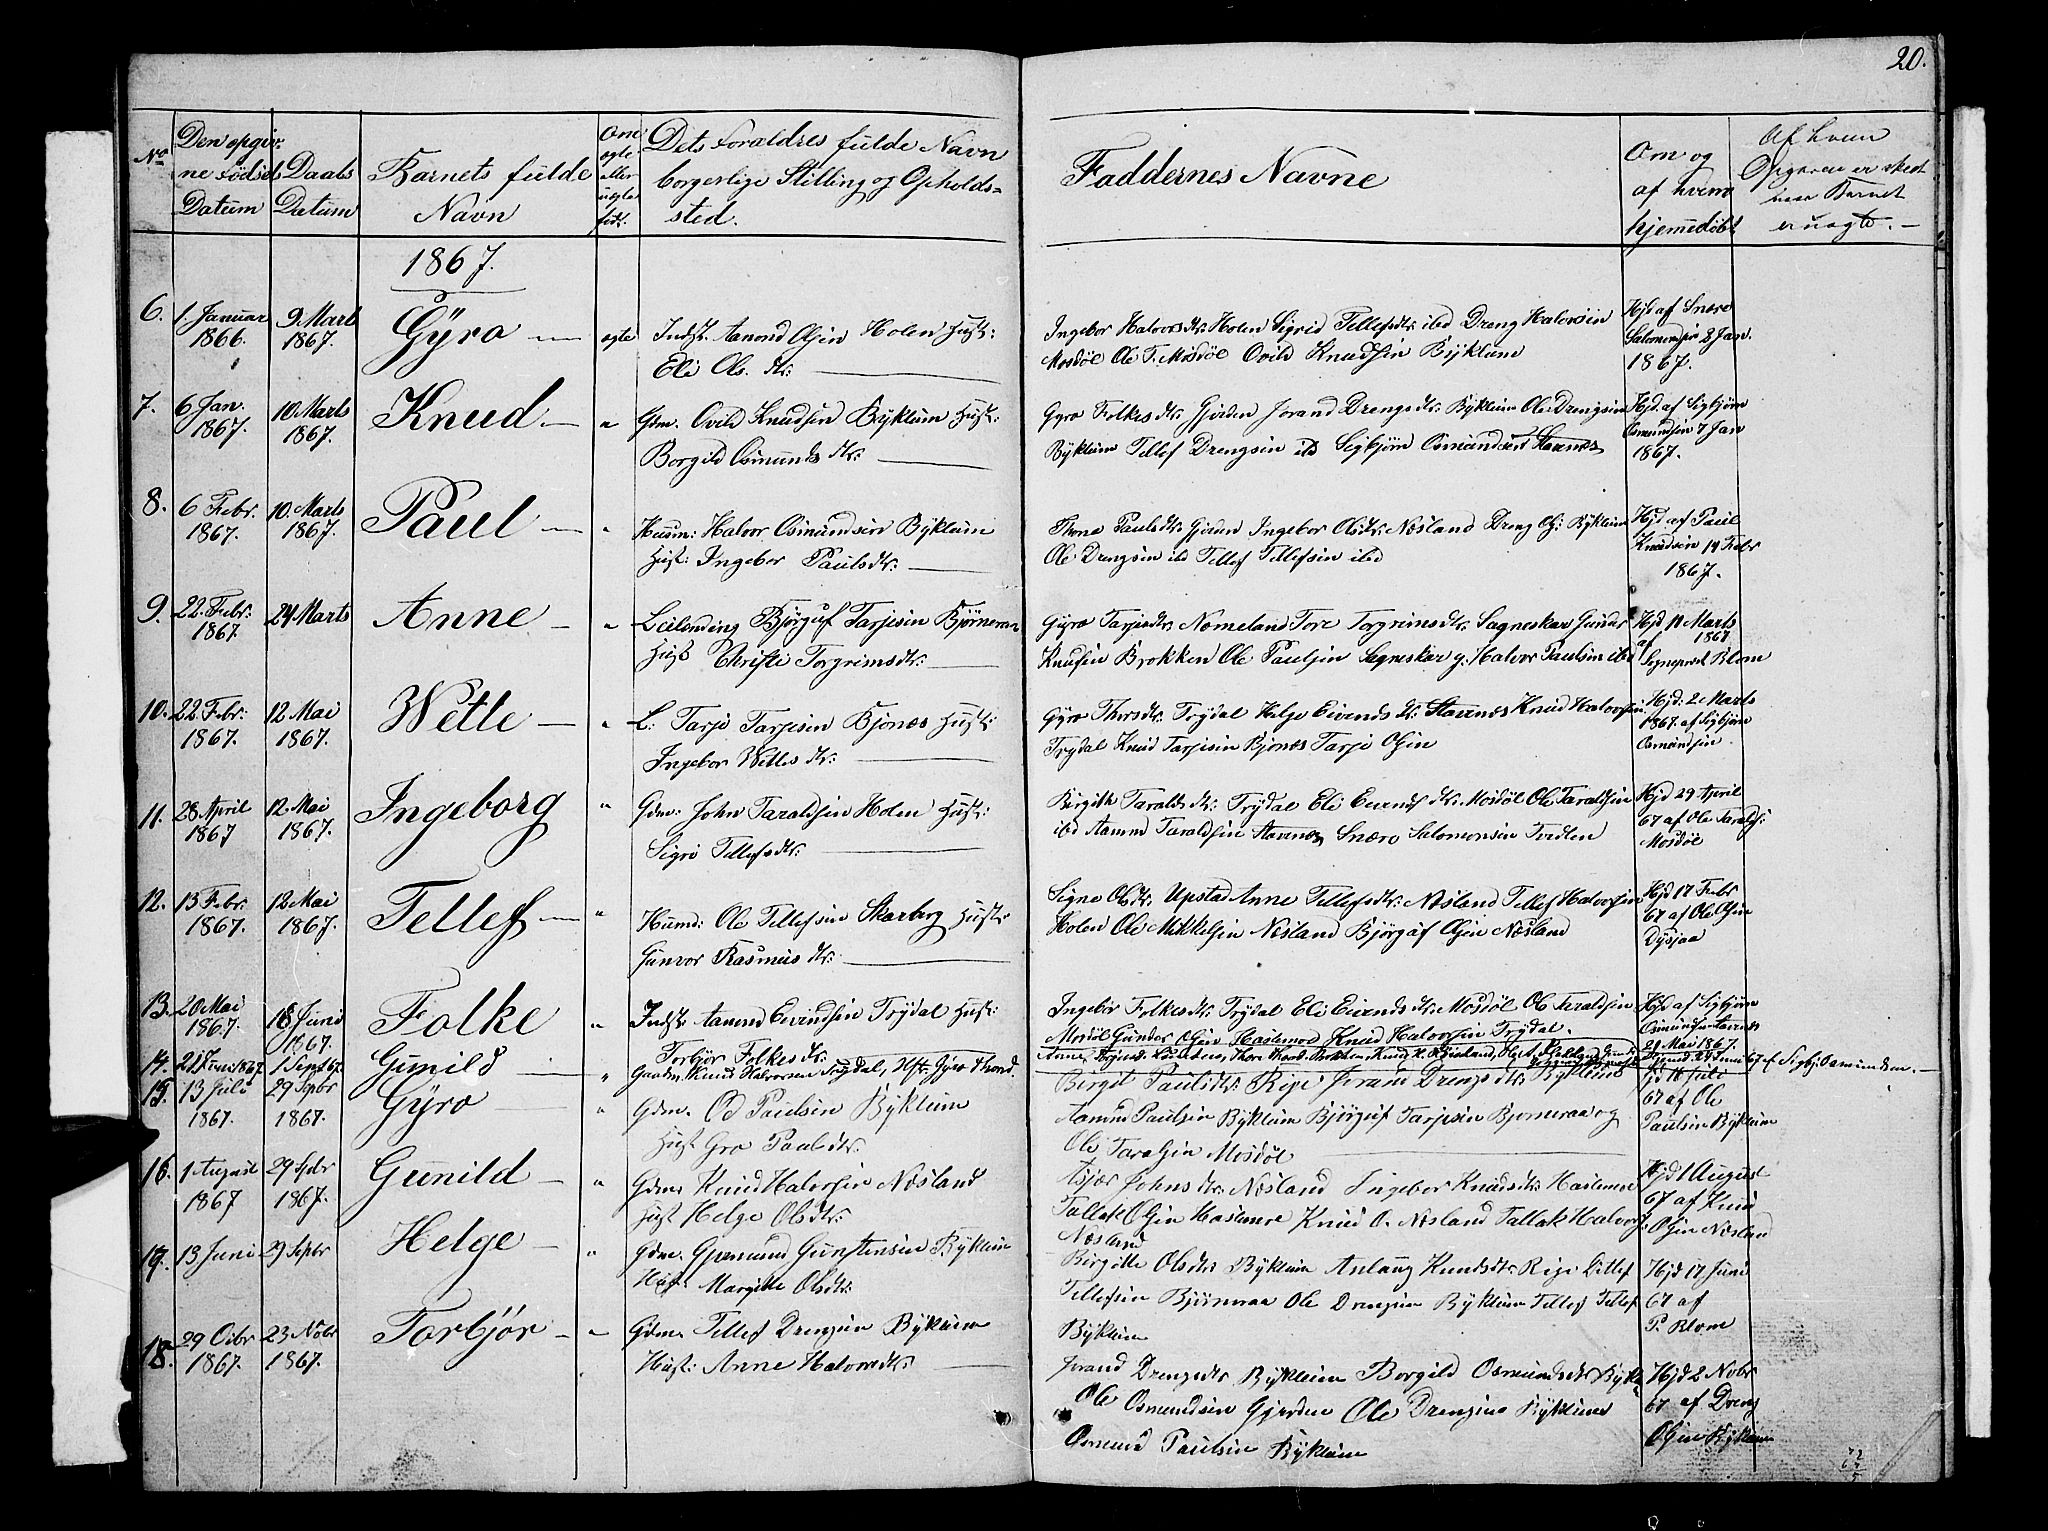 20.
No
Den opgiv=
ne Fødsels
Datum
Daabs
Datum
Barnets fulde
Navn
Om
egte
eller
uegte
født.
Dets Forældres fulde Navn
borgerlige Stilling og Opholds=
sted.
Faddernes Navne
Om og
af hvem
hjemmedøbt
Af hvem
Opgaven er skeet
naar Barnet
er uegte. —
1867.
6. 1. Januar 1866. 9 Marts 1867. Gÿro — egte
Indst. Aamond Olsen Holen Hust:
Eli Ols. dtr:
Ingebor Halvorsdtr: Holen Sigrid Tellefsdtr: ibd Dreng Halvorsin
Mosdöl Ole T. Mosdöl Ovild Knudsin Bÿkleim
Hjd af Snero
Salomonsin 2 Jan.
1867.
7. 6 Jan. 1867. 10 Marts 1867. Knud — "
Gdm. Ovild Knudsin Bÿkleim Hust:
Borgild Osmunds dtr:
Gyro Folkes dtr: Gjerden Jorand Drengsdtr: Bÿkleim Ole Drengsin
Bÿkleim Tellef Drengsin ibd Sigbjörn Osmundsin Stavnes
Hjd. af Sigbjørn
Osmundsin 7 Jan
1867.
8. 6 Febr. 1867. 10. Marts 1867. Paul — "
Huusm: Halvor Osmundsin Bÿkleim
Hust: Ingebor Paulsdtr:
Thone Paulsdtr: Gjerden Ingebor Olsdtr: Næsland Dreng Ols: Bÿkleim
Ole Drengsin ibd Tellef Tellefsin ibd
Hjd af Paul
Knudsin 14 Febr
1867.
9. 22. Febr: 1867. 24 Marts Anne — "
Leilending Bjørguf Tarjesin Bjørneraa
Hust Christi Torgrimsdtr:
Gÿro Tarjesdtr: Nomeland Tore Torgrimsdtr: Sagneskar Gunder
Knudsin Brokken Ole Paulsin Sagneskar g: Halvor Paulsin ibd
Hjd 11 Marts
1867
af Sognepræst Blom
10. 22. Febr: 1867. 12 Mai 1867. Wetle — "
L: Tarje Tarjesin Bjones Hust:
Ingebor Wetles dtr:
Gÿro Thorsdtr: Trÿdal Helge Eivends dtr. Stavenæs Knud Halvorsin
Trÿdal Knud Tarjesin Bjones Tarje Olsin
Hjd. 2 Marts
1867. af Sigbjørn
Osmundsin.
11. 28 April 1867 12. Mai 1867. Ingeborg "
Gdm: John Taraldsin Holen Hust:
Sigri Tellefsdtr:
Birgith Taralds dtr: Trÿdal Eli Eivends dtr: Mosdöl Ole Taraldsin
ibd Aamund Taraldsin Stavenes Snæro Salomonsin Tvedten
Hjd 29 April
67 af Ole Taralds:
Mosdöl
12. 13 Febr. 1867. 12 Mai 1867. Tellef — "
Husmd: Ole Tellefsin Skarberg Hust:
Gunvor Rasmus dtr:
Signe Olsdtr: Upstad Anne Tellefsdtr: Næsland Tellef Halvorsin
Holen Ole Mikkelsin Næsland Bjørguf Olsin Næsland
Hjd 17 Febr
67 af Ole Olsin
Dÿsjaa
13. 20 Mai 1867. 18 Juni 1867. Folke "
Indst: Aamund Eivindsin Trÿdal Hust:
Torbjør Folkesdtr:
Ingebor Folkesdtr: Trÿdal Eli Eivends dtr: Mosdöl Ole Taraldsin
Mosdöl Gunder Olsin Haslemo Knud Halvorsin Trydal.
Hjd af Sigbjørn
Osmundsin Stavnes
21 Mai 1867.
14. 21 Juni 1867. 1 Sept 67. Gunild — "
Gaardm. Knud Halvorsen Trydal, Hst: Gyro Thord.
Hjemd. 24 Juni 67 af Sigbj. Osmundsen. —
15. 13 Juli 1867. 29 Spbr 1867. Gÿro "
Gdm. Od Paulsin Bÿkleim
Hust Gro Paulsdtr.
Birgit Paulsdtr: Rige Jorand Drengsdtr: Bÿkleim
Aamund Paulsin Bÿkleim Bjørguf Tarjesin Bjorneraa og
Ole Taralsin Mosdöl
Hjd 16 Juli
67 af Ole
Paulsin Bÿkleim
16. 1 August 1867 29 Spbr 1867. Gunild — "
Gdm. Knud Halvorsin Næsland
Hust Helge Olsdtr:
Asjær Johns dtr: Næsland Ingebor Knudsdtr: Haslemoe
Tallak Olsin Haslemoe Knud O. Næsland Tallak Halvors:
Næsland
Hjd 1 August
67 af Knud
Olsin Næsland
17. 13 Juni 29 Spbr Helge — "
Gdm. Gjermund Gunstensin Bÿkleim
Hust. Margitte Olsdtr:
Birgitte Olsdtr: Bÿkleim Aslaug Knudsdtr: Rige Ditlef
Tellefsin Bjørneraa Ole Drengsin Bÿkleim Tellef Tellef
Bÿkleim
Hjd 17 Juni
67 af
P. Blom
18. 29 Octbr 1867. 23 Nobr 1867. Torbjør — "
Gdm. Tellef Drengsin Bÿkleim
Hust: Anne Halvorsdtr:
Jorand Drengsdtr Bÿkleim Borgild Osmundsdtr Bÿkl.
Ole Osmundsin Gjerden Ole Drengsin Bÿkleim
Osmund Paulsin Bÿkleim
Hjd 2 Nobr
67 af Dreng
Olsin Bÿkleim